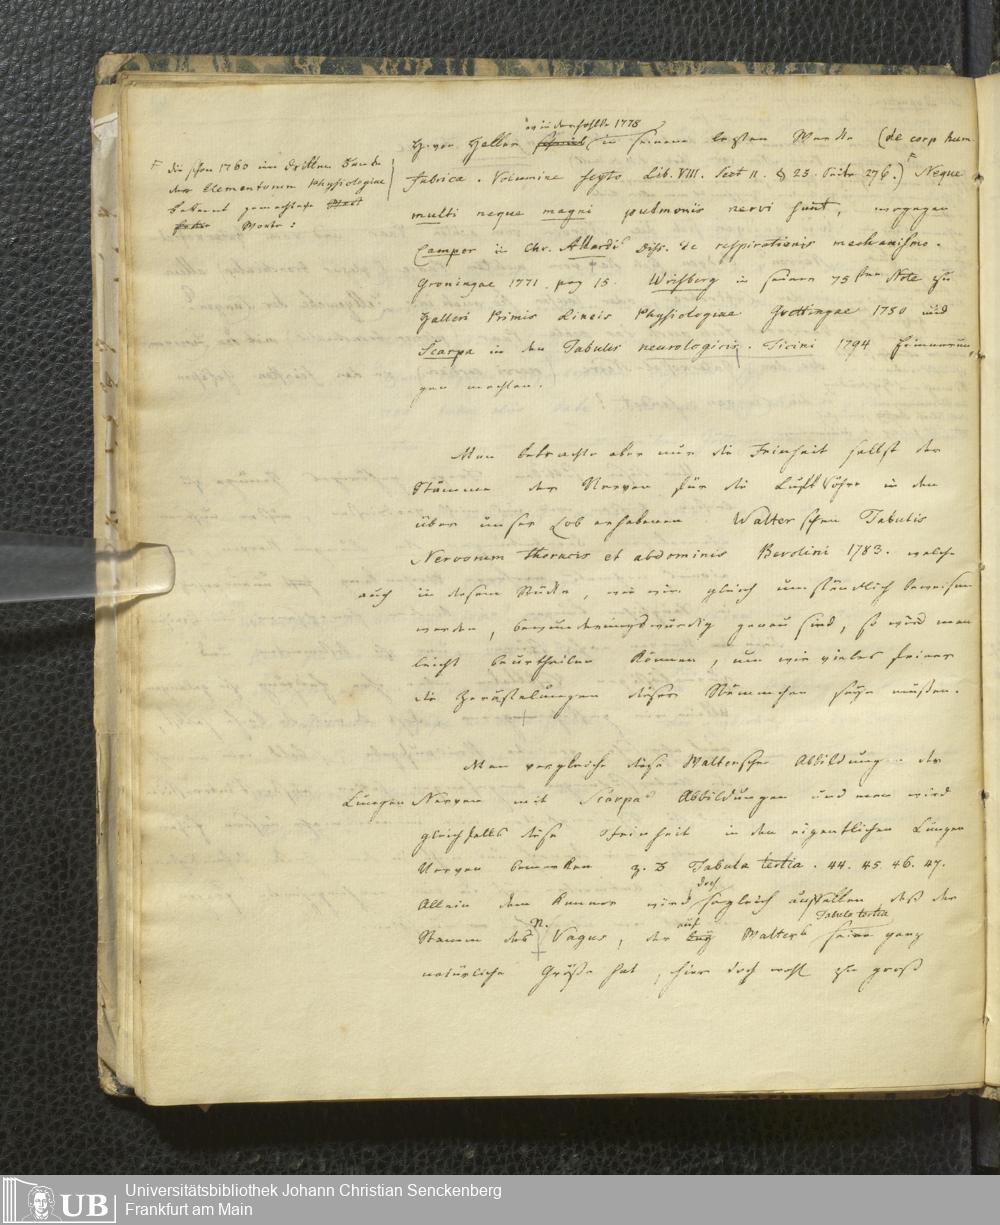 wiederhohlte 1778
H. von Haller schrieb in seinem letzten Werke (de corp hum.
fabrica. Volumine septo Lib. VIII. Sect II. § 23. Seite 276.) F Neque
F die schon 1760 im dritten Bande
der Elementorum Physiologiae
bekannt gemachten
Worte:
multi neque magni pulmonis nervi sunt, wogegen
Camper in Chr. Allardi Diss. de respirationis mechanismo.
Groningae 1771. pag 15. Wrisberg in seiner 75sten Note zu
Halleri Primis Lineis Physiologiae Goettingae 1780 und
Scarpa in den Tabulis neurologicis. Ticini 1794 Erinnerun
gen machten.
Man betrachte aber nur die Feinheit selbst der
Stämme der Nerven für die Luft Röhre in den
über unser Lob erhabenen Walterschen Tabulis
Nervorum thoracis et abdominis Berolini 1783. welche
auch in diesem Stücke, wie wir gleich umständlich beweisen
werden, bewunderungswürdig genau sind, so wird man
leicht beurtheilen können, um wie vieles feiner
die Zerästelungen dieser Stämmchen seyn müßen.
Man vergleiche diese Waltersche Abbildung der
Lungen Nerven mit Scarpas Abbildungen und man wird
gleichfalls diese Feinheit in den eigentlichen Lungen
Nerven bemerken z. B Tabula tertia. 44. 45. 46. 47.
doch
Allein dem Kenner wird sogleich auffallen daß der
N. auf Tabula tertia
Stamm des Vagus, der bey Walters seine ganz
natürliche Größe hat, hier doch wohl zu groß
UB
Universitätsbibliothek Johann Christian Senckenberg
Frankfurt am Main